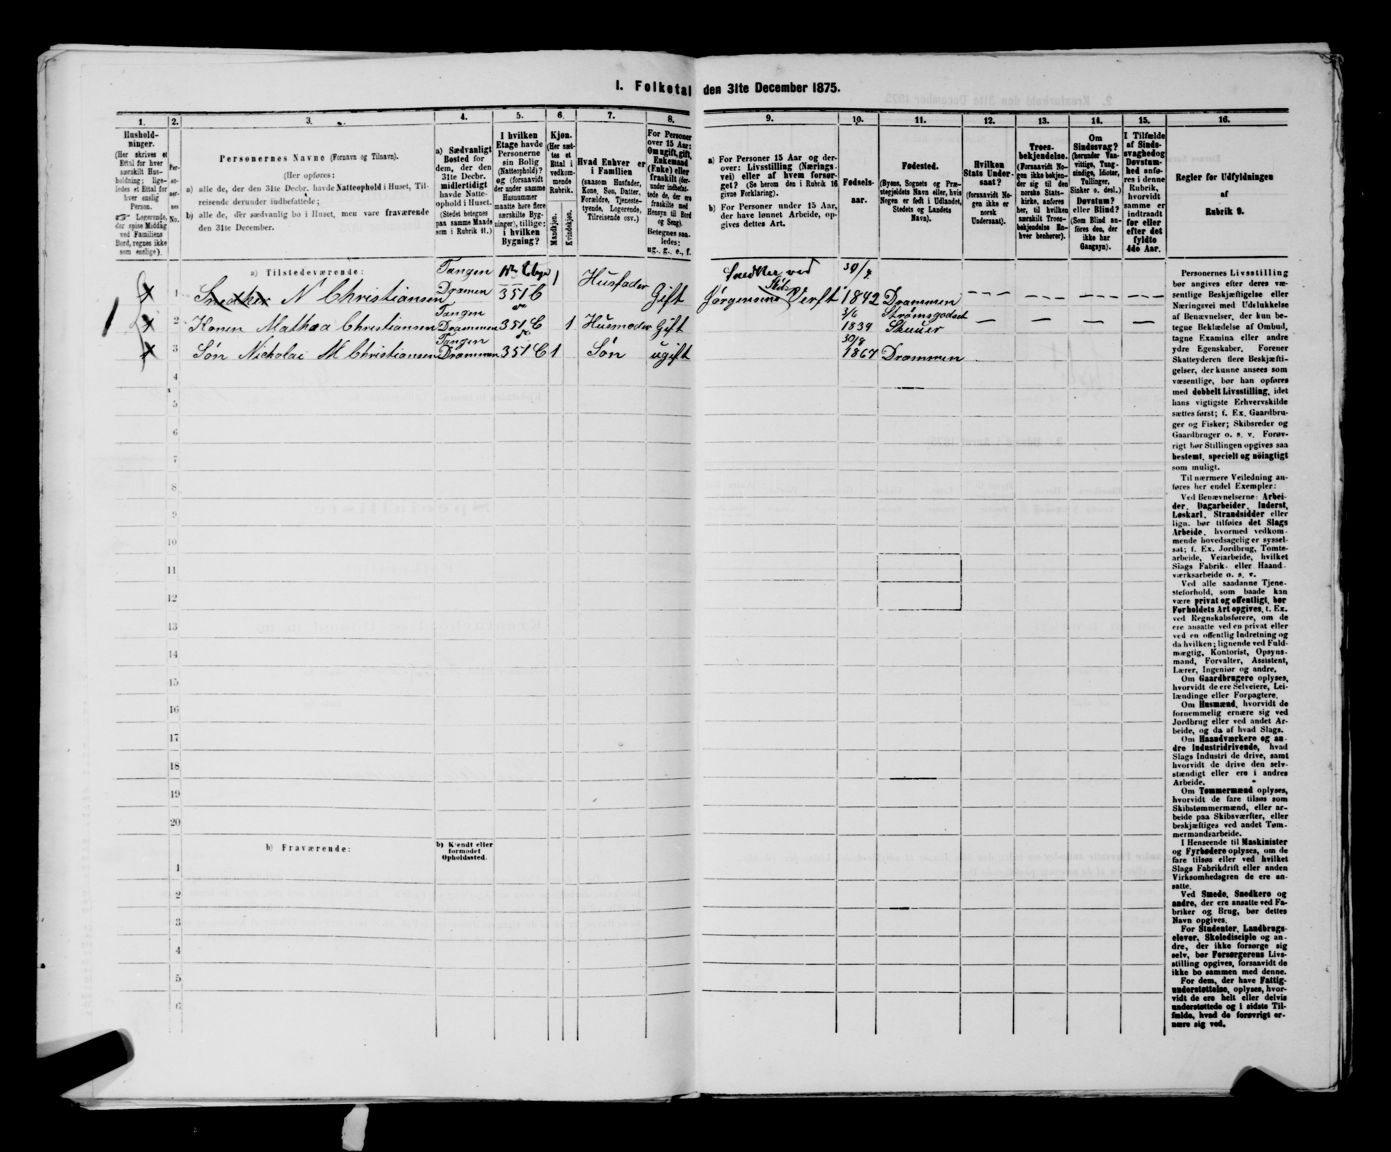 1. Folketal den 31te December 1875.
1. 2. 3. 4. 5. 6. 7. 8. 9. 10. 11. 12. 13. 14. 15. 16.
Hushold-
ninger.
(Her skrives et
Ettal for hver
særskilt Hus-
holdning; lige-
ledes et Ettal for
hver enslig
Person.
☞ Logerende,
der spise Middag
ved Familiens
Bord, regnes ikke
som enslige).
Per-
so-
ner-
nes
No.
Personernes Navne (Fornavn og Tilnavn).
(Her opføres:
a) alle de, der den 31te Decbr. havde Natteophold i Huset, Til-
reisende derunder indbefattede;
b) alle de, der sædvanlig bo i Huset, men vare fraværende
den 31te December.
a) Sædvanligt
Bosted for
dem, der den
31te Decbr.
midlertidigt
havde Natte-
ophold i Huset.
(Stedet betegnes
paa samme Maade
som i Rubrik 11.)
I hvilken
Etage havde
Personerne
sin Bolig
(Natteophold)?
og (forsaavidt
der under samme
Husnummer
maatte høre flere
særskilte Byg-
ninger), tillige:
i hvilken
Bygning?
Kjøn.
(Her sæt-
tes et
Ettal i
vedkom-
mende
Rubrik.
Mandkjøn.
Kvindekjøn.
Hvad Enhver er
i Familien
(saasom Husfader,
Kone, Søn, Datter,
Forældre, Tjeneste-
tyende, Logerende,
Tilreisende osv.)
For Personer
over 15 Aar:
Om ugift, gift,
Enkemand
(Enke) eller
fraskilt (der-
under indbefat-
tede de, der ere
fraskilte med
Hensyn til Bord
og Seng).
Betegnes saa-
ledes:
ug., g., e., f.
a) For Personer 15 Aar og der-
over: Livsstilling (Nærings-
vei) eller af hvem forsør-
get? (Se herom den i Rubrik 16
givne Forklaring).
b) For Personer under 15 Aar,
der have lønnet Arbeide, op-
gives dettes Art.
Fødsels-
aar.
Fødested.
(Byens, Sognets og Præ-
stegjeldets Navn eller, hvis
Nogen er født i Udlandet,
Stedets og Landets
Navn).
Hvilken
Stats Under-
saat?
(forsaavidt No-
gen ikke er
norsk
Undersaat).
Troes-
bekjendelse.
(Forsaavidt No-
gen ikke bekjen-
der sig til den
norske Stats-
kirke, anføres
her, til hvilken
særskilt Troes-
bekjendelse En-
hver henhører).
Om
Sindssvag?
(herunder Van-
vittige, Tung-
sindige, Idioter,
Tullinger,
Sinker o. desl.)
Døvstum?
eller Blind?
(Som Blind an-
føres den, der
ikke har
Gangsyn).
I Tilfælde
af Sinds-
svaghed og
Døvstum-
hed anfø-
res i denne
Rubrik,
hvorvidt
samme er
indtraadt
før eller
efter det
fyldte
4de Aar.
Regler for Udfyldningen
af
Rubrik 9.
a) Tilstedeværende:
1 Snedker N Christiansen Tangen Drammen 351 C 1 Husfader Gift Snedker ved Jørgensens Skibs Verft 1842 Drammen
2 Konen Mathea Christiansen Tangen Drammen 351 C 1 Husmoder Gift 2/6 1839 Strømsgodset
3 Søn Nicholai M Christiansen Tangen Drammen 351 C 1 Søn ugift 30/8 1867 Drammen
4
5
6
7
8
9
10
11
12
13
14
15
16
17
18
19
20
b) Fraværende:
b) Kjendt eller
formodet
Opholdssted.
1
2
3
4
5
6
Personernes Livsstilling
bør angives efter deres væ-
sentlige Beskjæftigelse eller
Næringsvei med Udelukkelse
af Benævnelser, der kun be-
tegne Beklædelse af Ombud,
tagne Examina eller andre
ydre Egenskaber. Forener
Skatteyderen flere Beskjæfti-
gelser, der kunne ansees som
væsentlige, bør han opføres
med dobbelt Livsstilling, idet
hans vigtigste Erhvervskilde
sættes først; f. Ex. Gaardbru-
ger og Fisker; Skibsreder og
Gaardbruger o. s. v. Forøv-
rigt bør Stillingen opgives saa
bestemt, specielt og nøiagtigt
som muligt.
Til nærmere Veiledning an-
føres her endel Exempler:
Ved Benævnelserne: Arbei-
der, Dagarbeider, Inderst,
Løskarl, Strandsidder eller
lign. bør tilføies det Slags
Arbeide, hvormed vedkom-
mende hovedsagelig er syssel-
sat; f. Ex. Jordbrug, Tomte-
arbeide, Veiarbeide, hvilket
Slags Fabrik- eller Haand-
værksarbeide o. s. v.
Ved alle saadanne Tjene-
steforhold, som baade kan
være privat og offentligt, bør
Forholdets Art opgives, t. Ex.
ved Regnskabsførere, om de
ere ansatte ved en privat eller
ved en offentlig Indretning og
da hvilken; lignende ved Fuld-
mægtig, Kontorist, Opsyns-
mand, Forvalter, Assistent,
Lærer, Ingeniør og andre.
Om Gaardbrugere oplyses,
hvorvidt de ere Selveiere, Lei-
lændinge eller Forpagtere.
Om Husmænd, hvorvidt de
fornemmelig ernære sig ved
Jordbrug eller ved andet Ar-
beide, og da af hvad Slags.
Om Haandværkere og an-
dre Industridrivende, hvad
Slags Industri de drive, samt
hvorvidt de drive den selv-
stændigt eller ere i andres
Arbeide.
Om Tømmermænd oplyses,
hvorvidt de fare tilsøs som
Skibstømmermænd, eller ar-
beide paa Skibsværfter, eller
beskjæftiges ved andet Tøm-
mermandsarbeide.
I Henseende til Maskinister
og Fyrbødere oplyses, om de
fare tilsøs eller ved hvilket
Slags Fabrikdrift eller anden
Virksomhedsgren de ere an-
satte.
Ved Smede, Snedkere og
andre, der ere ansatte ved Fa-
briker og Brug, bør dettes
Navn opgives.
For Studenter, Landbrugs-
elever, Skoledisciple og an-
dre, der ikke forsørge sig
selv, bør Forsørgerens Livs-
stilling opgives, forsaavidt de
ikke bo sammen med denne.
For dem, der have Fattig-
understøttelse, oplyses, hvor-
vidt de ere helt eller delvis
understøttede og i sidste Til-
fælde, hvad de forøvrigt er-
nære sig ved.